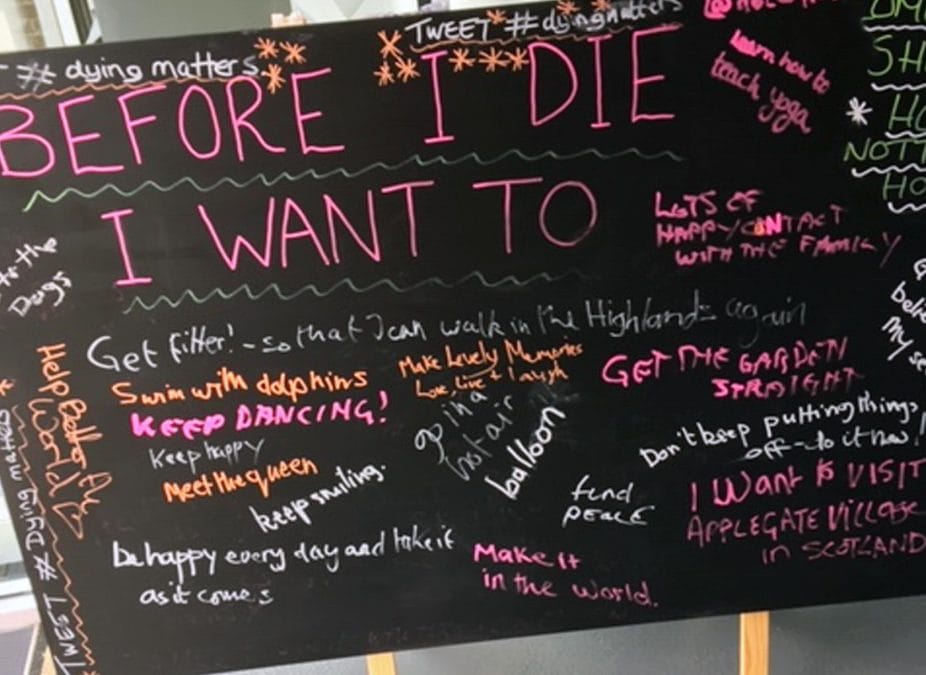 # dying matters
TWEET # dyingmatters
BEFORE I DIE
I WANT TO
Learn how to
teach yoga
LOTS OF
HAPPY CONTACT
WITH THE FAMILY
the
Dogs
Get fitter! - so that I can walk in the Highlands again
Swim with dolphins
KEEP DANCING!
Keep happy
Meet the queen
keep smiling.
Make Lovely Memories
Love, live + laugh
go in a
hot air
balloon
GET THE GARDEN
STRAIGHT
Don't keep putting things
off - do it now!
find
PEACE
I Want to VISIT
APPLEGATE VILLAGE
in SCOTLAND
be happy every day and take it
as it comes
Make it
in the World.
Help better the
World
TWEET # Dying matters
My
NOTT
HO